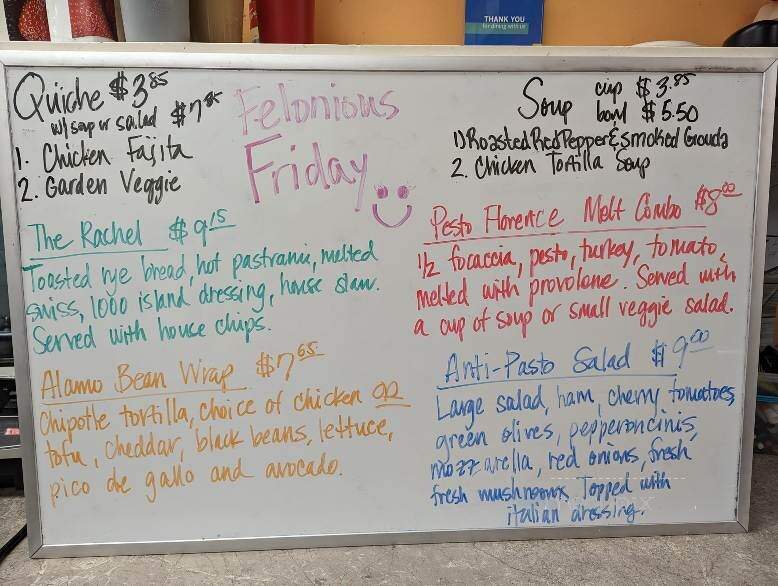 THANK YOU
for dining with us
Quiche $3.85
w/ soup or salad $7.85
1. Chicken Fajita
2. Garden Veggie
Felonious
Friday
Soup cup $3.85
bowl $5.50
1) Roasted Red Pepper & Smoked Gouda
2. Chicken Tortilla Soup
The Rachel $9.15
Toasted rye bread, hot pastrami, melted
swiss, 1000 island dressing, house slaw.
Served with house chips.
Pesto Florence Melt Combo $8.00
1/2 focaccia, pesto, turkey, tomato,
melted with provolone. Served with
a cup of soup or small veggie salad.
Alamo Bean Wrap $7.65
Chipotle tortilla, choice of chicken or
tofu, cheddar, black beans, lettuce,
pico de gallo and avocado.
Anti-Pasto Salad $9.00
Large salad, ham, cherry tomatoes,
green olives, pepperoncinis,
mozzarella, red onions, fresh
fresh mushrooms. Topped with
italian dressing.